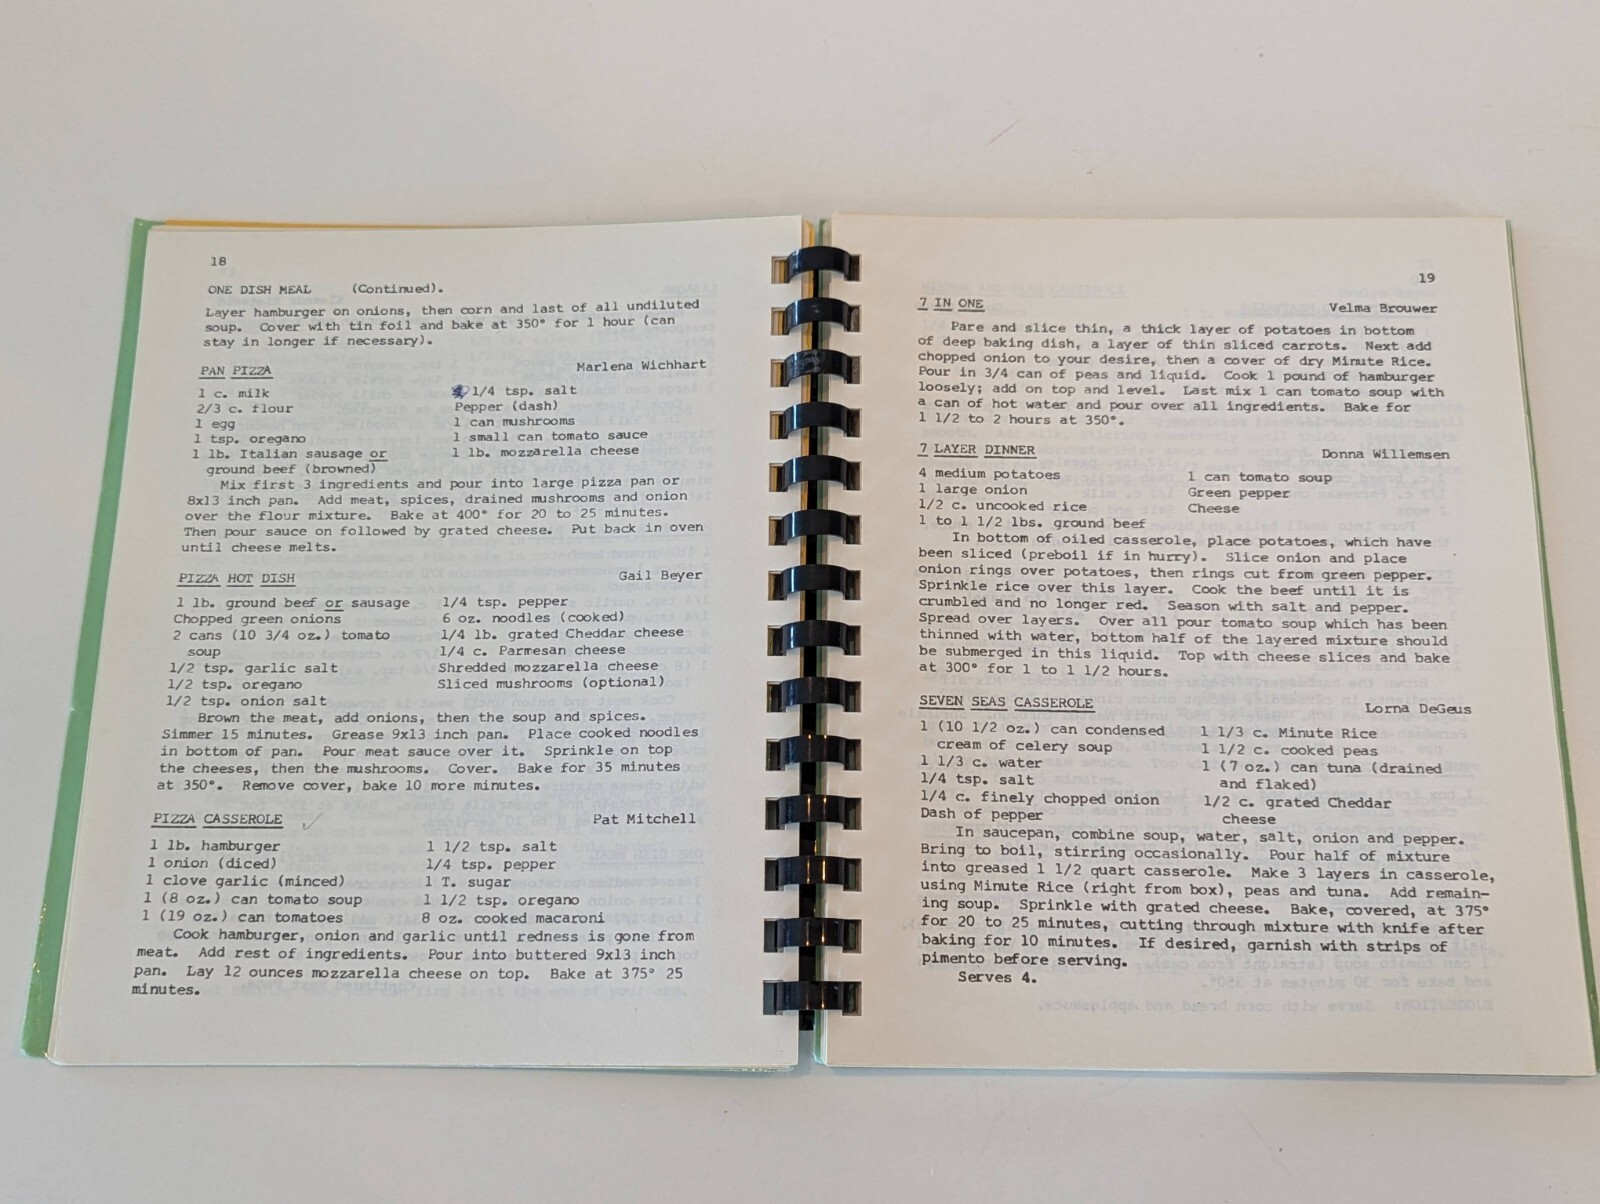 18
ONE DISH MEAL (Continued).
Layer hamburger on onions, then corn and last of all undiluted
soup. Cover with tin foil and bake at 350° for 1 hour (can
stay in longer if necessary).
PAN PIZZA Marlena Wichhart
1 c. milk 1/4 tsp. salt
2/3 c. flour Pepper (dash)
1 egg 1 can mushrooms
1 tsp. oregano 1 small can tomato sauce
1 lb. Italian sausage or 1 lb. mozzarella cheese
ground beef (browned)
Mix first 3 ingredients and pour into large pizza pan or
8x13 inch pan. Add meat, spices, drained mushrooms and onion
over the flour mixture. Bake at 400° for 20 to 25 minutes.
Then pour sauce on followed by grated cheese. Put back in oven
until cheese melts.
PIZZA HOT DISH Gail Beyer
1 lb. ground beef or sausage 1/4 tsp. pepper
Chopped green onions 6 oz. noodles (cooked)
2 cans (10 3/4 oz.) tomato 1/4 lb. grated Cheddar cheese
soup 1/4 c. Parmesan cheese
1/2 tsp. garlic salt Shredded mozzarella cheese
1/2 tsp. oregano Sliced mushrooms (optional)
1/2 tsp. onion salt
Brown the meat, add onions, then the soup and spices.
Simmer 15 minutes. Grease 9x13 inch pan. Place cooked noodles
in bottom of pan. Pour meat sauce over it. Sprinkle on top
the cheeses, then the mushrooms. Cover. Bake for 35 minutes
at 350°. Remove cover, bake 10 more minutes.
PIZZA CASSEROLE Pat Mitchell
1 lb. hamburger 1 1/2 tsp. salt
1 onion (diced) 1/4 tsp. pepper
1 clove garlic (minced) 1 T. sugar
1 (8 oz.) can tomato soup 1 1/2 tsp. oregano
1 (19 oz.) can tomatoes 8 oz. cooked macaroni
Cook hamburger, onion and garlic until redness is gone from
meat. Add rest of ingredients. Pour into buttered 9x13 inch
pan. Lay 12 ounces mozzarella cheese on top. Bake at 375° 25
minutes.
19
7 IN ONE Velma Brouwer
Pare and slice thin, a thick layer of potatoes in bottom
of deep baking dish, a layer of thin sliced carrots. Next add
chopped onion to your desire, then a cover of dry Minute Rice.
Pour in 3/4 can of peas and liquid. Cook 1 pound of hamburger
loosely; add on top and level. Last mix 1 can tomato soup with
a can of hot water and pour over all ingredients. Bake for
1 1/2 to 2 hours at 350°.
7 LAYER DINNER Donna Willemsen
4 medium potatoes 1 can tomato soup
1 large onion Green pepper
1/2 c. uncooked rice Cheese
1 to 1 1/2 lbs. ground beef
In bottom of oiled casserole, place potatoes, which have
been sliced (preboil if in hurry). Slice onion and place
onion rings over potatoes, then rings cut from green pepper.
Sprinkle rice over this layer. Cook the beef until it is
crumbled and no longer red. Season with salt and pepper.
Spread over layers. Over all pour tomato soup which has been
thinned with water, bottom half of the layered mixture should
be submerged in this liquid. Top with cheese slices and bake
at 300° for 1 to 1 1/2 hours.
SEVEN SEAS CASSEROLE Lorna DeGeus
1 (10 1/2 oz.) can condensed 1 1/3 c. Minute Rice
cream of celery soup 1 1/2 c. cooked peas
1 1/3 c. water 1 (7 oz.) can tuna (drained
1/4 tsp. salt and flaked)
1/4 c. finely chopped onion 1/2 c. grated Cheddar
Dash of pepper cheese
In saucepan, combine soup, water, salt, onion and pepper.
Bring to boil, stirring occasionally. Pour half of mixture
into greased 1 1/2 quart casserole. Make 3 layers in casserole,
using Minute Rice (right from box), peas and tuna. Add remain-
ing soup. Sprinkle with grated cheese. Bake, covered, at 375°
for 20 to 25 minutes, cutting through mixture with knife after
baking for 10 minutes. If desired, garnish with strips of
pimento before serving.
Serves 4.